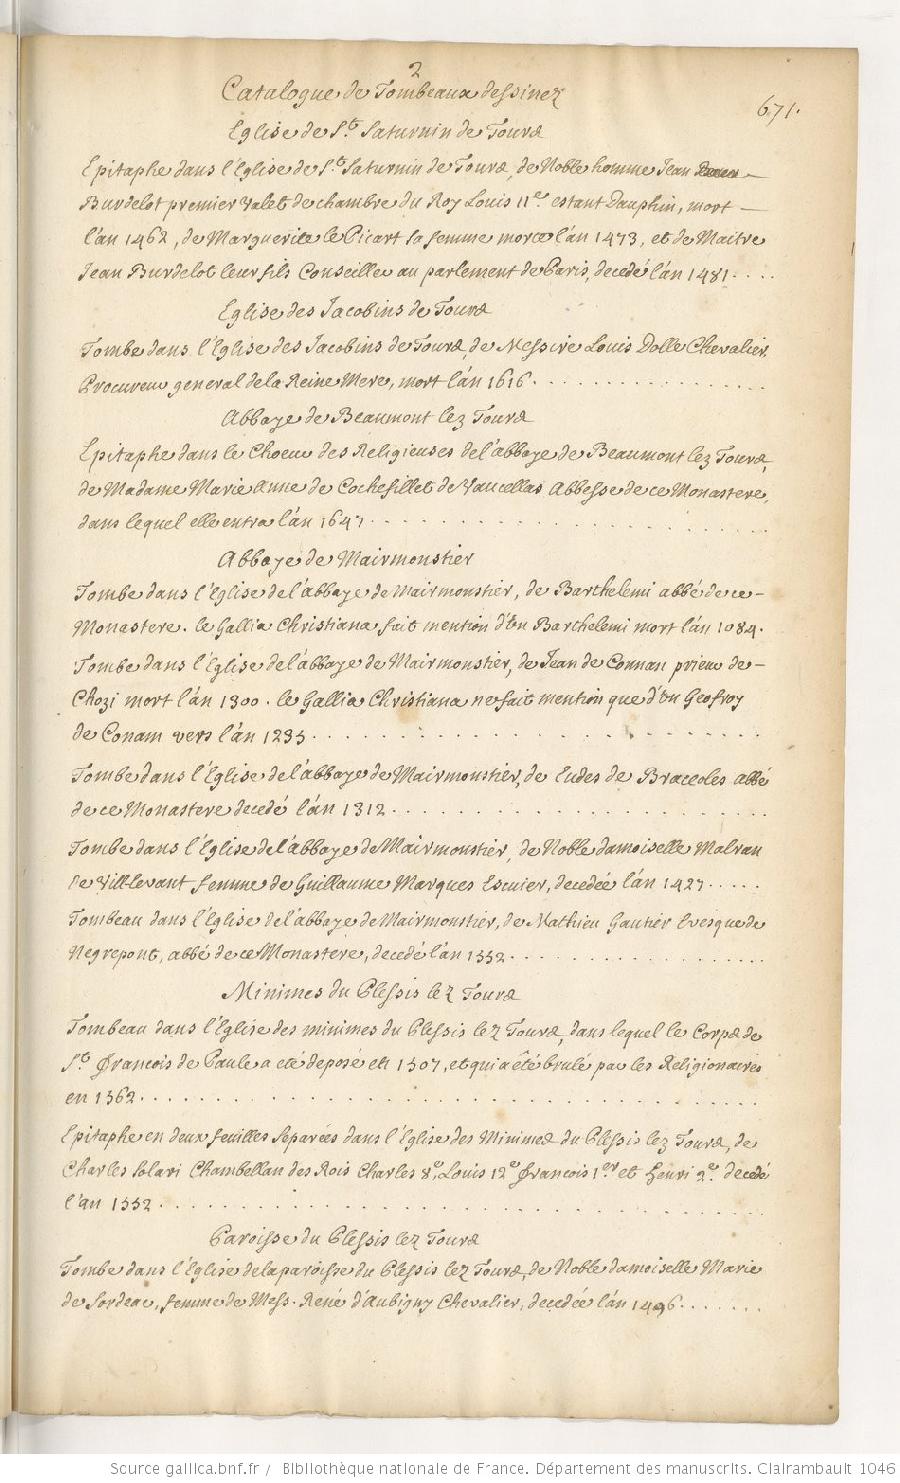 2
Catalogue de Tombeaux dessinez
671.
Eglise de St. Saturnin de Tours
Epitaphe dans l'Eglise de St. Saturnin de Tours, de Noble homme Jean
Burdelot premier Valet de chambre du Roy Louis 11e. estant Dauphin, mort
l'an 1462, de Marguerite le Picart sa femme morte l'an 1473, et de Maitre
Jean Burdelot leur fils Conseiller au parlement de Paris, decedé l'an 1481....
Eglise des Jacobins de Tours
Tombe dans l'Eglise des Jacobins de Tours, de Messire Louis Dolle Chevalier
Procureur general de la Reine Mere, mort l'an 1616.
Abbaye de Beaumont lez Tours
Epitaphe dans le Choeur des Religieuses de l'abbaye de Beaumont lez Tours,
de Madame Marie Anne de Cochefillet de Vaucellas Abbesse de ce Monastere,
dans lequel elle entra l'an 1647
Abbaye de Mairmonstier
Tombe dans l'Eglise de l'abbaye de Mairmonstier, de Barthelemi abbé de ce
Monastere. le Gallia Christiana fait mention d'un Barthelemi mort l'an 1084.
Tombe dans l'Eglise de l'abbaye de Mairmonstier, de Jean de Connan prieur de
Chozi mort l'an 1300. le Gallia Christiana ne fait mention que d'un Geofroy
de Conam vers l'an 1235
Tombe dans l'Eglise de l'abbaye de Mairmonstier, de Eudes de Braceoles abbé
de ce Monastere decedé l'an 1312
Tombe dans l'Eglise de l'abbaye de Mairmonstier, de Noble damoiselle Malran
de Villevant femme de Guillaume Marques Escuier, decedée l'an 1427
Tombeau dans l'Eglise de l'abbaye de Mairmonstier, de Mathieu Gautier Evesque de
Negrepont, abbé de ce Monastere, decedé l'an 1552
Minimes du Plessis lez Tours
Tombeau dans l'Eglise des minimes du Plessis lez Tours, dans lequel le Corps de
St. François de Paule a eté deposé en 1507, et qui a êté brulé par les Religionaires
en 1562
Epitaphe en deux feuilles separées dans l'Eglise des Minimes du Plessis lez Tours, de
Charles Solari Chambellan des Rois Charles 8e, Louis 12e François 1er et Henri 2e. decedé
l'an 1552
Paroisse du Plessis lez Tours
Tombe dans l'Eglise de la paroisse du Plessis lez Tours, de Noble damoiselle Marie
de Sordeac, femme de Mess. René d'Aubigny Chevalier, decedée l'an 1496
Source gallica.bnf.fr / Bibliothèque nationale de France. Département des manuscrits. Clairambault 1046